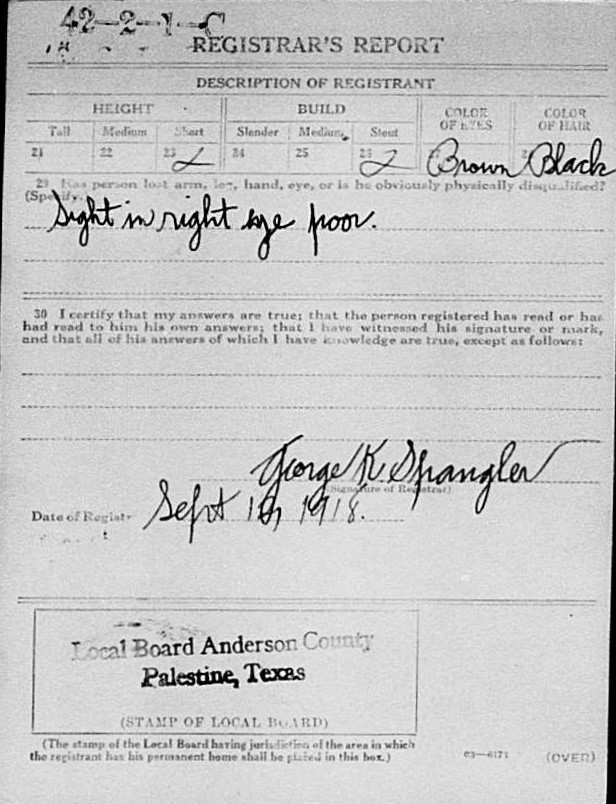 42-2-1-C
REGISTRAR'S REPORT
DESCRIPTION OF REGISTRANT
HEIGHT BUILD COLOR OF EYES COLOR OF HAIR
Tall Medium Short Slender Medium Stout
21 22 23 24 25 26 Brown Black
29 Has person lost arm, leg, hand, eye, or is he obviously physically disqualified?
(Specify.)
Sight in right eye poor.
30 I certify that my answers are true; that the person registered has read or has
had read to him his own answers; that I have witnessed his signature or mark,
and that all of his answers of which I have knowledge are true, except as follows:
George K Spangler
(Signature of Registrar)
Date of Registr Sept 1918.
Local Board Anderson County
Palestine, Texas
(STAMP OF LOCAL BOARD)
(The stamp of the Local Board having jurisdiction of the area in which
the registrant has his permanent home shall be placed in this box.)
03—6171 (OVER)